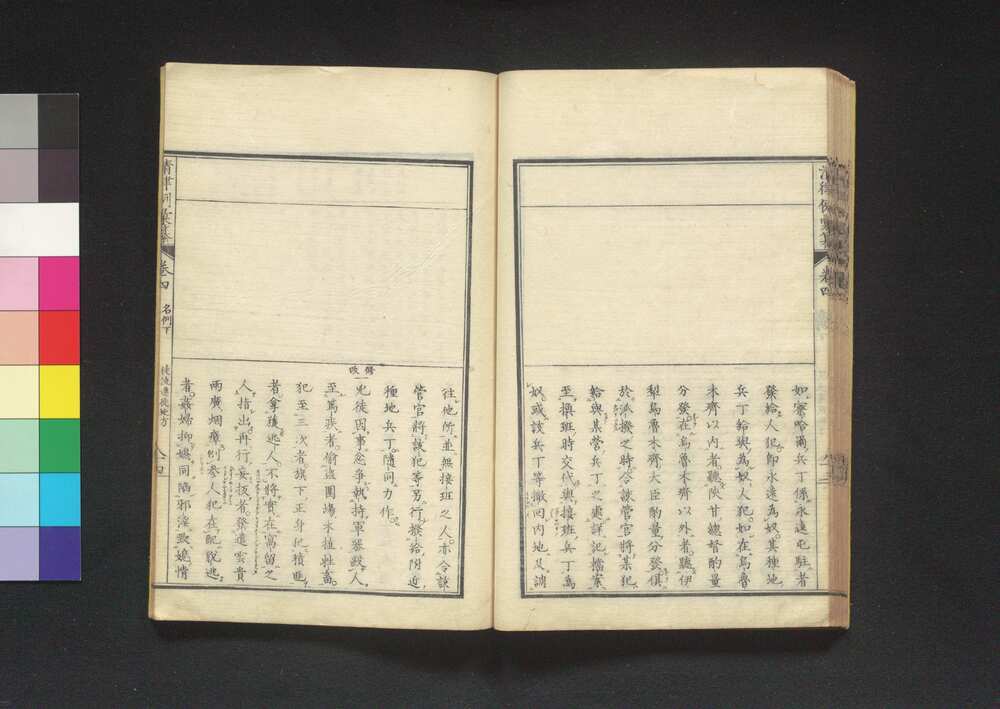 如察哈爾兵丁係永遠屯駐者
發給人犯即永遠為奴其種地
兵丁給與為奴人犯如在烏魯
木齊以內者聽陝甘總督酌量
分發在烏魯木齊以外者聽伊
犁烏魯木齊大臣酌量分發俱
於派撥之時令該管官將某犯
給與某營兵丁之處詳記檔案
至換班時交代與接班兵丁為
奴或該兵丁等撤回內地及調
往他所並無接班之人亦令該
管官將該犯等另行撥給附近
種地兵丁隨同力作
修改
一兇徒因事忿爭執持軍器毆人
至篤疾者偷盜圍場木植牲畜
犯至三次者旗下正身犯積匪
者拿獲逃人不將實在窩留之
人指出再行妄扳者發遣雲貴
兩廣烟瘴例參人犯在配脫逃
者姦婦抑媳同陷邪淫致媳情
清律例彙纂
卷四
名例下
徒流遷徙地方